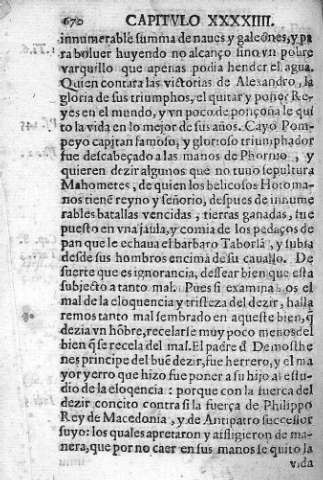 670 CAPITVLO XXXXIIII.
innumerable summa de naues y galeones, y pa
ra boluer huyendo no alcanço sino vn pobre
varquillo que apenas podia hender el agua.
Quien contara las victorias de Alexandro, la
gloria de sus triumphos, el quitar y poner Re-
yes en el mundo, y vn poco de ponçoña le qui
to la vida en lo mejor de sus años. Cayo Pom-
peyo capitan famoso, y glorioso triumphador
fue descabeçado a las manos de Phormio, y
quieren dezir algunos que no tuuo sepultura
Mahometes, de quien los belicosos Hotoma-
nos tienẽ reyno y señorio, despues de innume
rables batallas vencidas, tierras ganadas, fue
puesto en vna jaula, y comia de los pedaços de
pan que le echaua el barbaro Taborlã, y subia
desde sus hombros encima de su cauallo. De
suerte que es ignorancia, dessear bien que esta
subjecto a tanto mal. Pues si examinamos el
mal de la eloquencia y tristeza del dezir, halla
remos tanto mal sembrado en aqueste bien, q̃
dezia vn hõbre, recelarse muy poco menos del
bien q̃ se recela del mal. El padre đ Demosthe
nes principe del buẽ dezir, fue herrero, y el ma
yor yerro que hizo fue poner a su hijo al estu-
dio de la eloqencia: porque con la fuerca del
dezir concito contra si la fuerça de Philippo
Rey de Macedonia, y de Antipatro successor
suyo: los quales apretaron y affligieron de ma-
nera, que por no caer en sus manos se quito la
vida